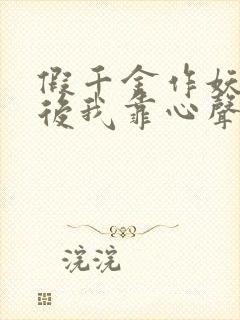 假千金作妖
後我靠心聲
浣浣